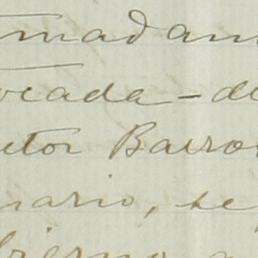 madam
ocada - de
utor Barro
nario, se